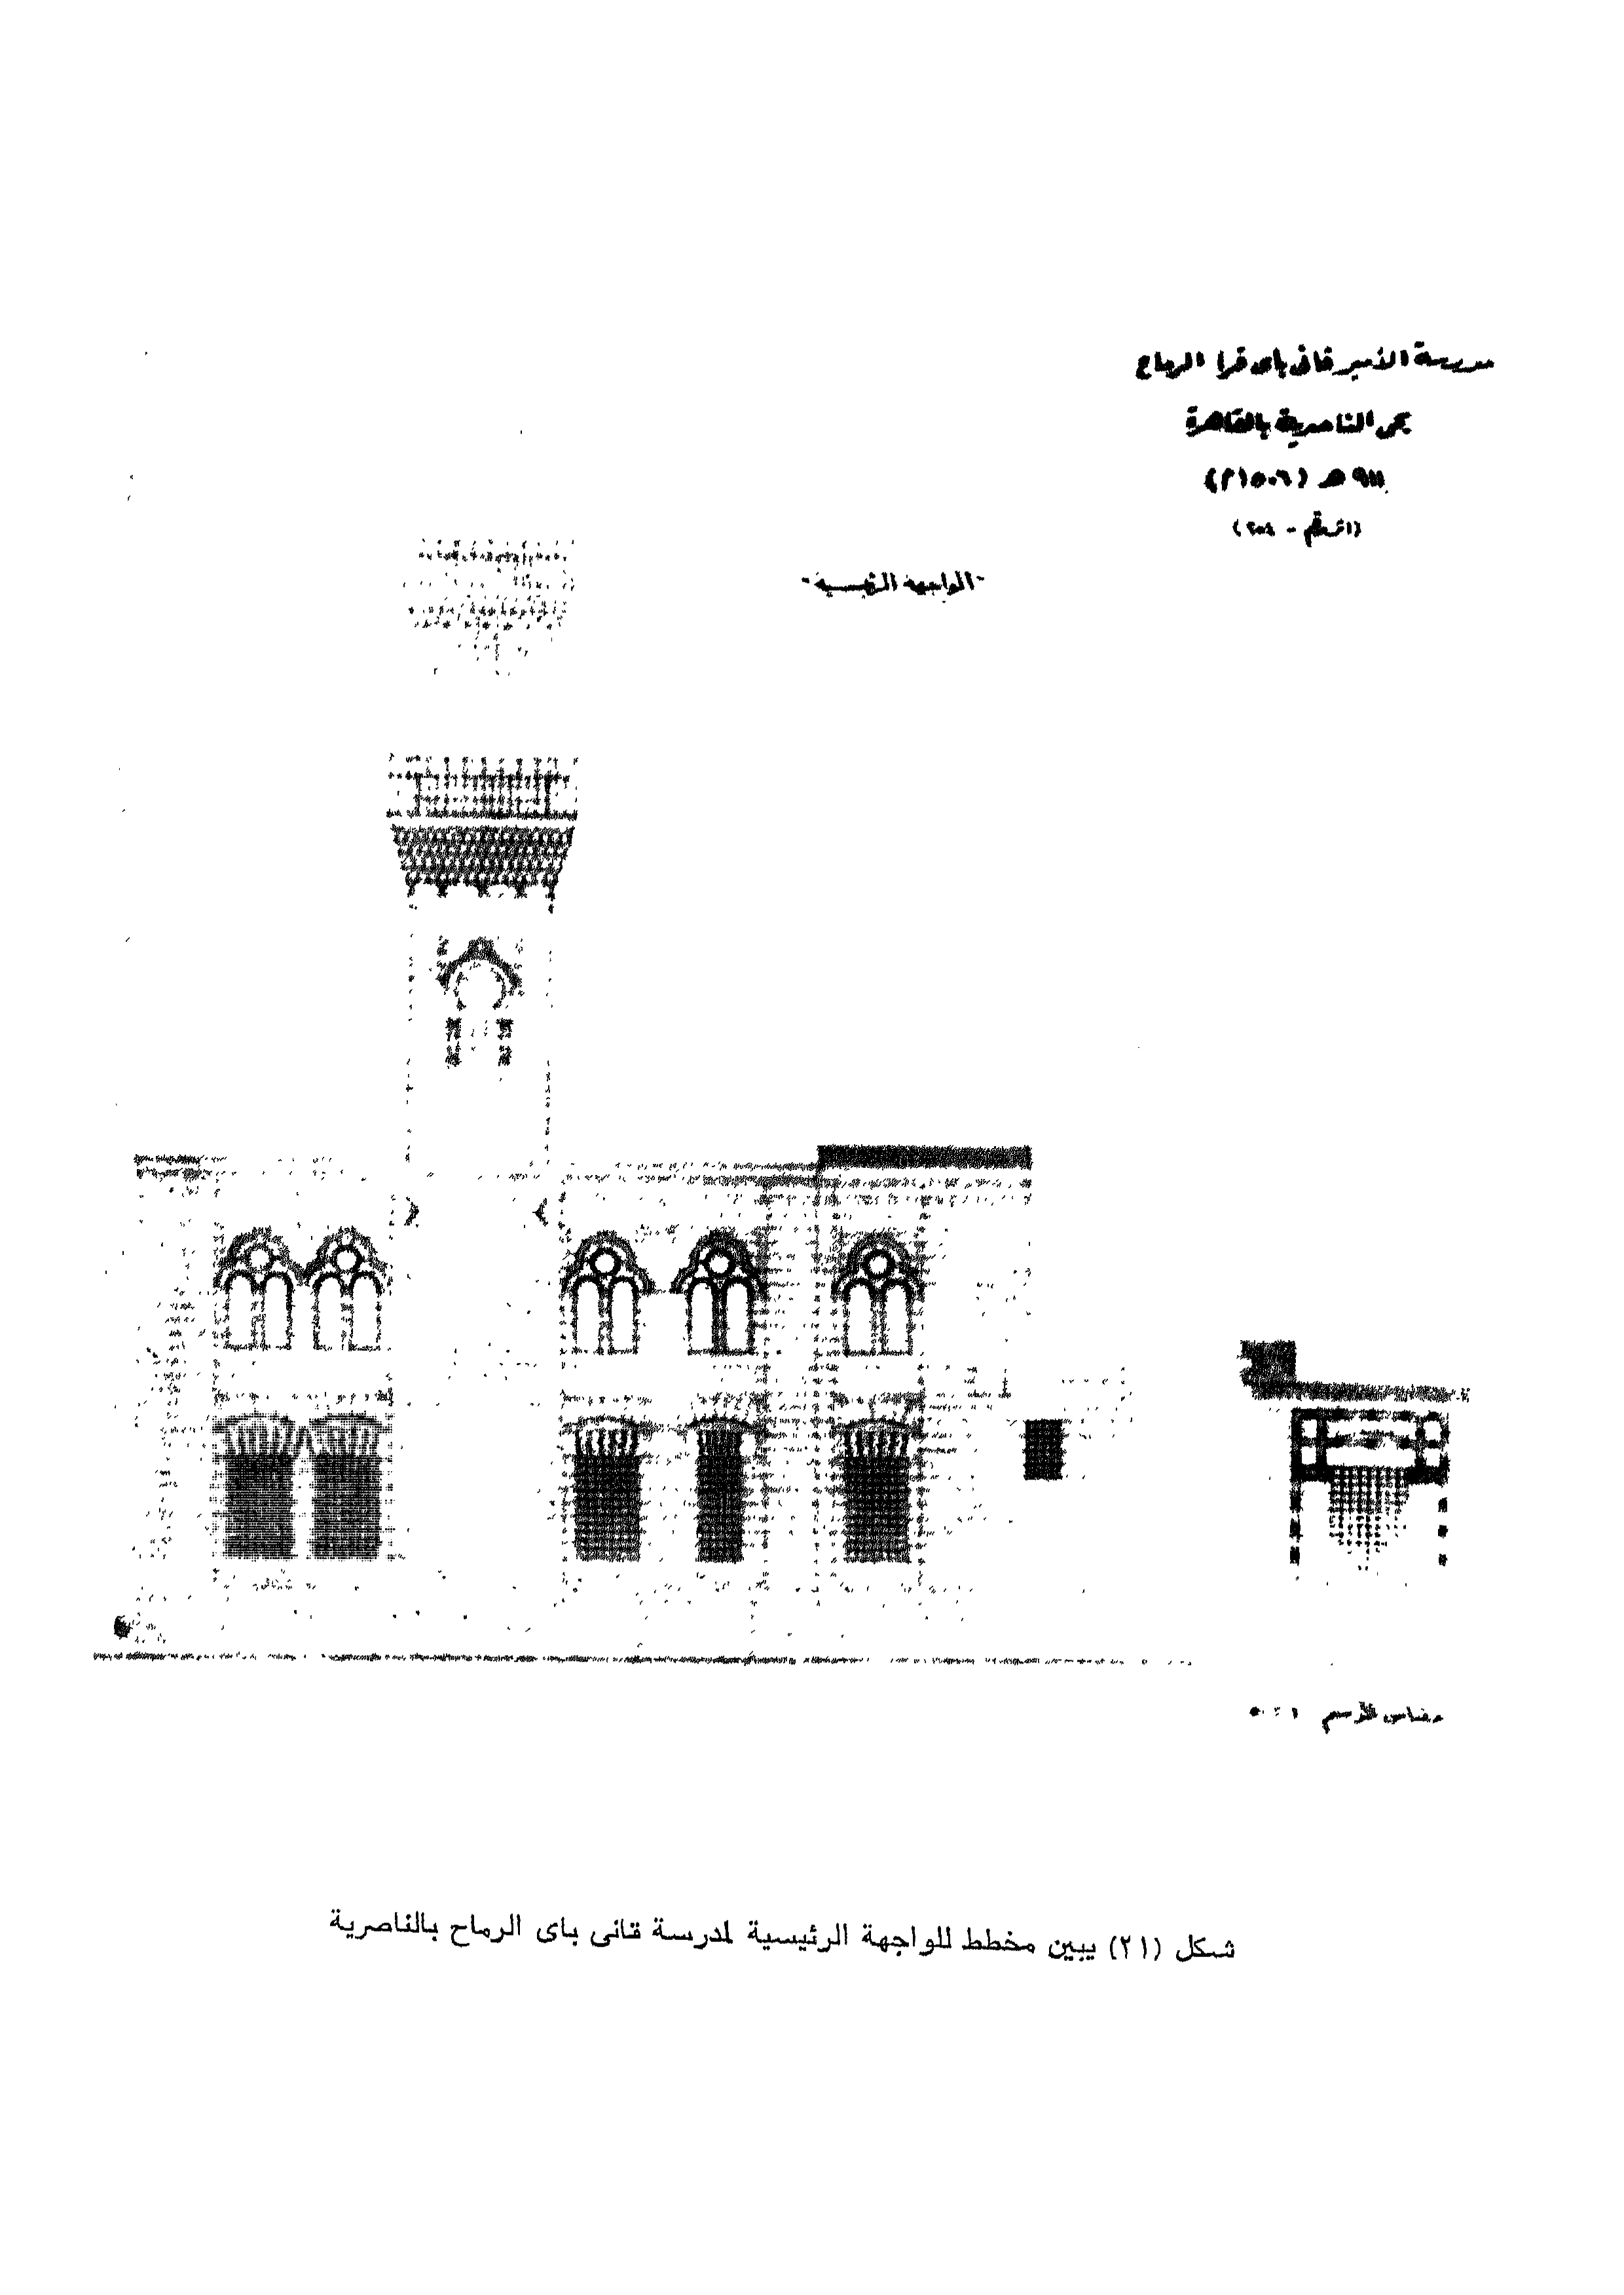 مدرسة الأمير قانى باى قرا الرماح
بحى الناصرية بالقاهرة
٩١١ هـ (١٥٠٦م)
(أثر رقم - ٢٥٤)
-الواجهة الرئيسية-
مقياس الرسم ١ : ٥٠
شكل (٢١) يبين مخطط للواجهة الرئيسية لمدرسة قانى باى الرماح بالناصرية